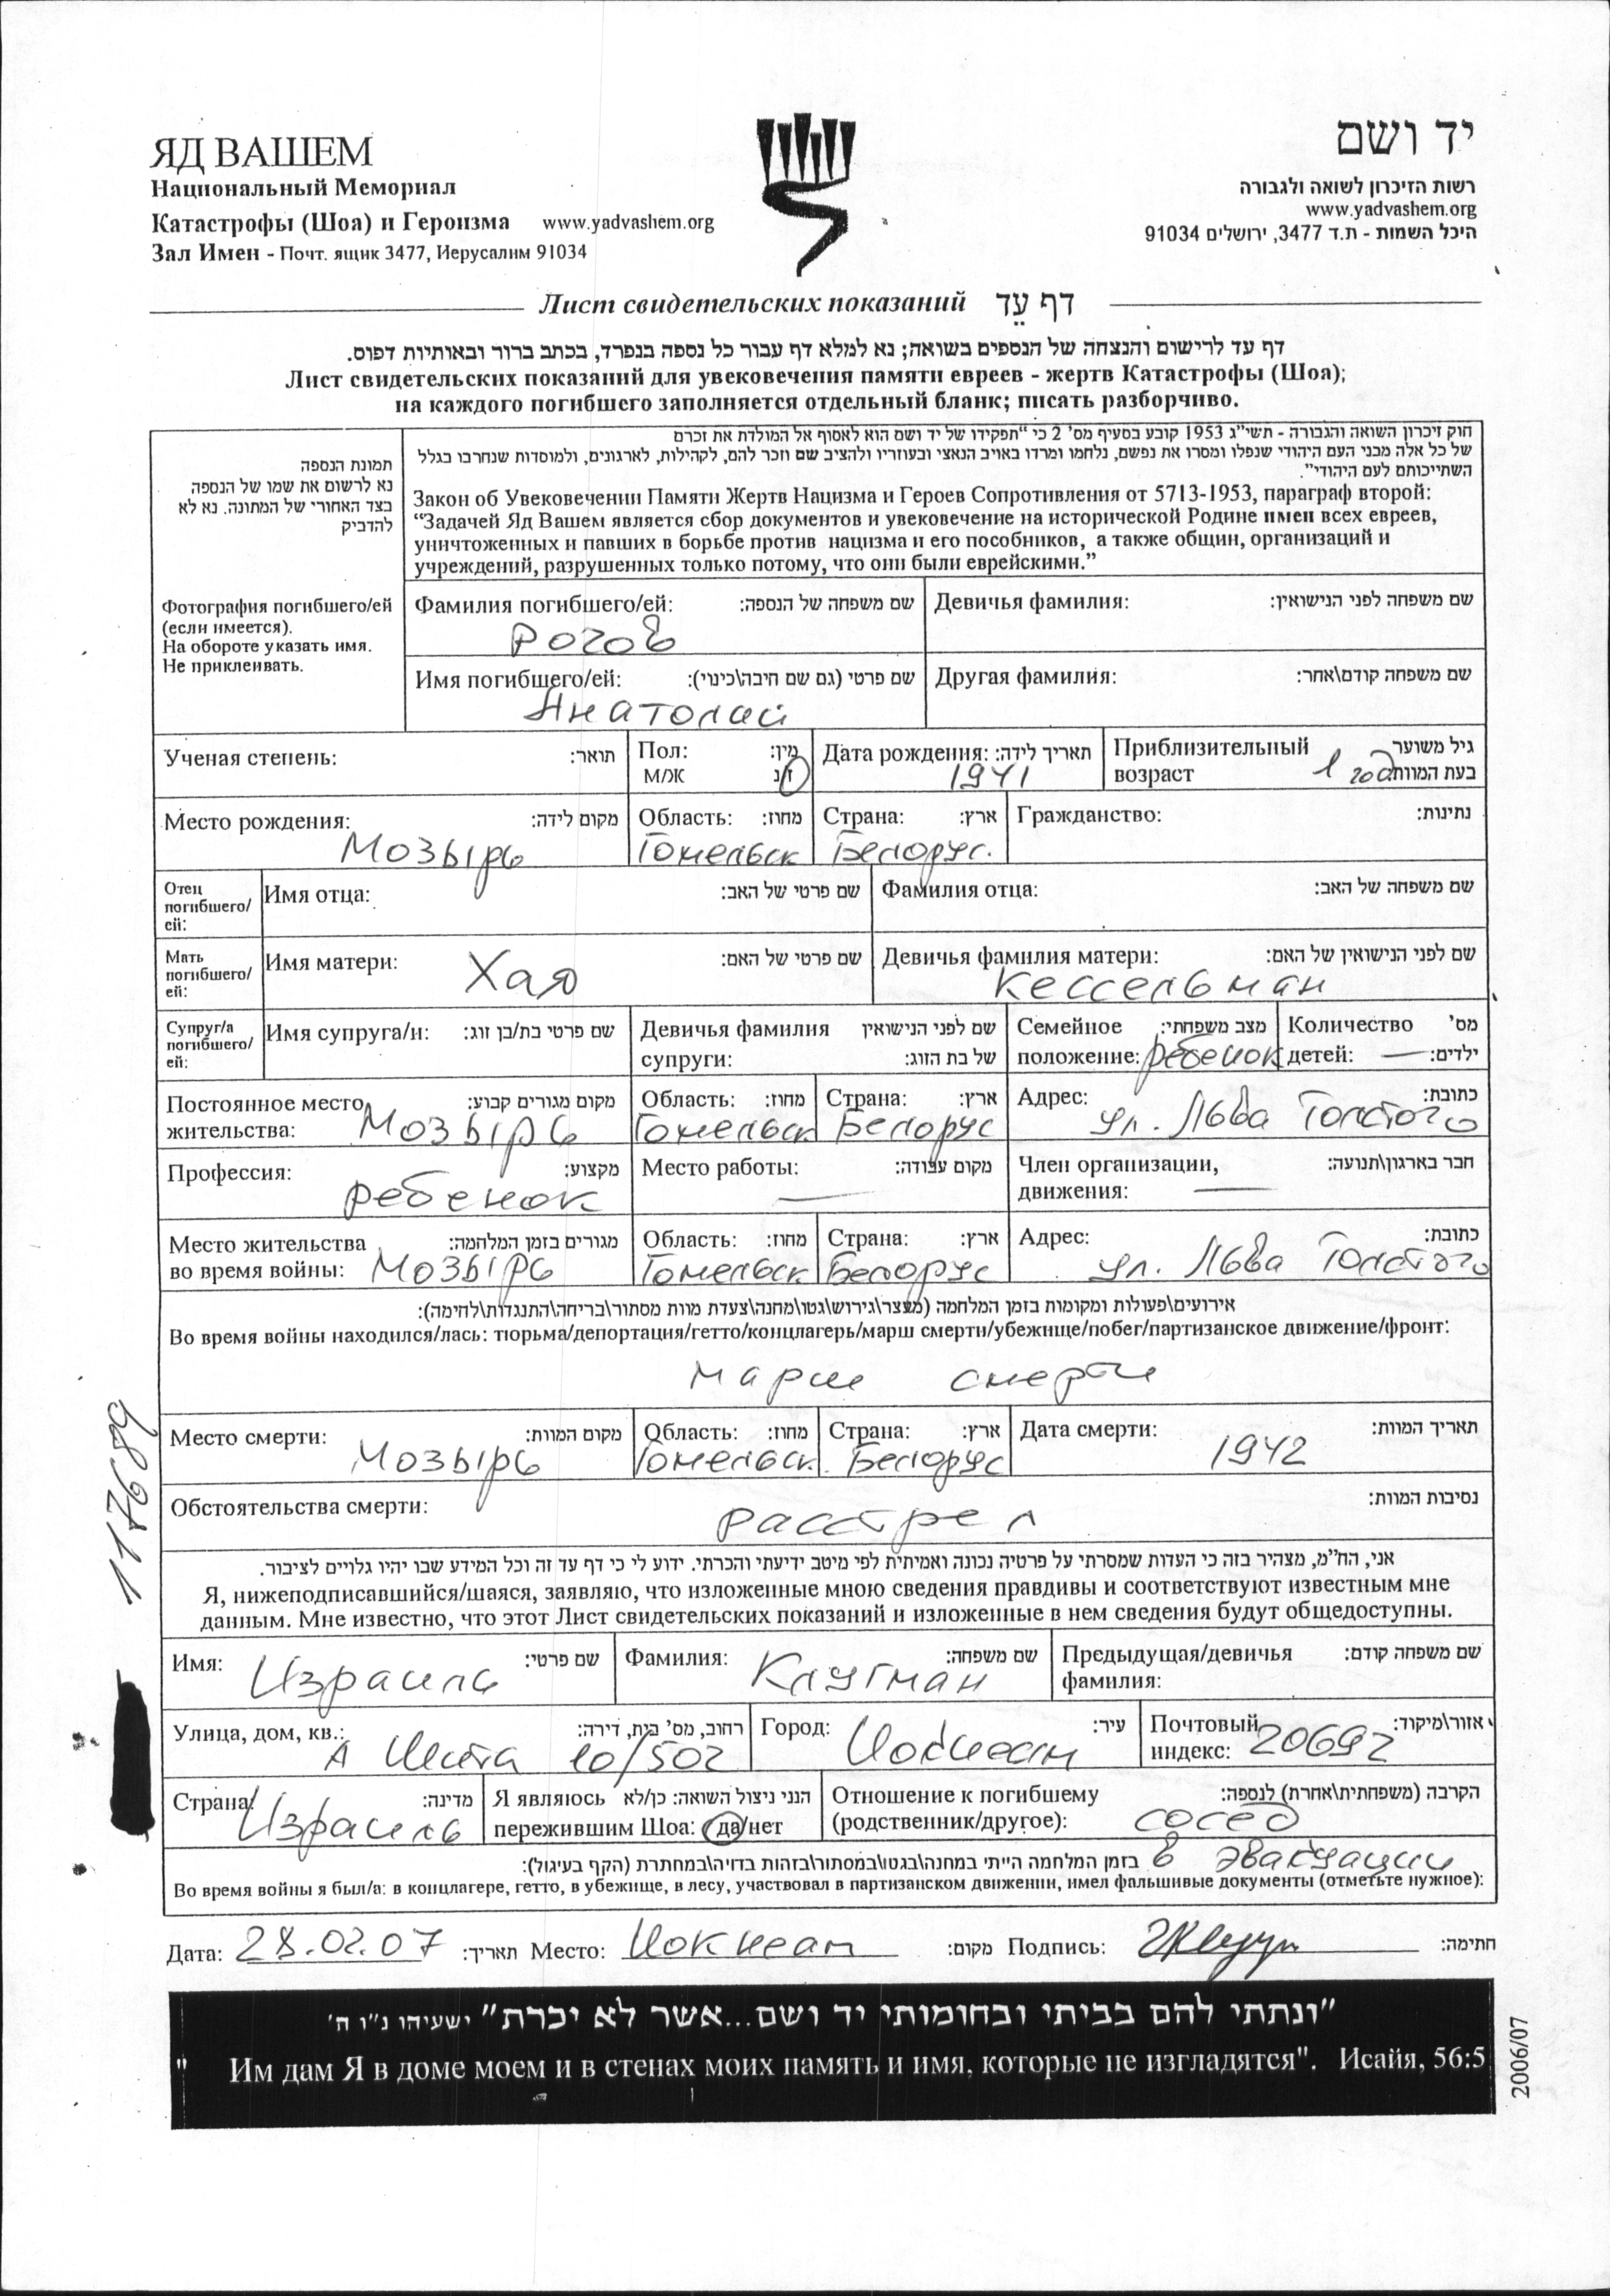 ЯД ВАШЕМ
Национальный Мемориал
Катастрофы (Шоа) и Героизма www.yadvashem.org
Зал Имен - Почт. ящик 3477, Иерусалим 91034
יד ושם
רשות הזיכרון לשואה ולגבורה
www.yadvashem.org
היכל השמות - ת.ד 3477, ירושלים 91034
Лист свидетельских показаний דף עֵד
דף עד לרישום והנצחה של הנספים בשואה; נא למלא דף עבור כל נספה בנפרד, בכתב ברור ובאותיות דפוס.
Лист свидетельских показаний для увековечения памяти евреев - жертв Катастрофы (Шоа);
на каждого погибшего заполняется отдельный бланк; писать разборчиво.
תמונת הנספה
נא לרשום את שמו של הנספה
בצד האחורי של המתונה. נא לא
להדביק
Фотография погибшего/ей
(если имеется).
На обороте указать имя.
Не приклеивать.
חוק זיכרון השואה והגבורה - תשי"ג 1953 קובע בסעיף מס' 2 כי "תפקידו של יד ושם הוא לאסוף אל המולדת את זכרם
של כל אלה מבני העם היהודי שנפלו ומסרו את נפשם, נלחמו ומרדו באויב הנאצי ובעוזריו ולהציב שם וזכר להם, לקהילות, לארגונים, ולמוסדות שנחרבו בגלל
השתייכותם לעם היהודי".
Закон об Увековечении Памяти Жертв Нацизма и Героев Сопротивления от 5713-1953, параграф второй:
“Задачей Яд Вашем является сбор документов и увековечение на исторической Родине имен всех евреев,
уничтоженных и павших в борьбе против нацизма и его пособников, а также общин, организаций и
учреждений, разрушенных только потому, что они были еврейскими.”
Фамилия погибшего/ей: שם משפחה של הנספה: Девичья фамилия: שם משפחה לפני הנישואין:
Рогов
Имя погибшего/ей: שם פרטי (גם שם חיבה\כינוי): Другая фамилия: שם משפחה קודם\אחר:
Анатолий
Ученая степень: תואר: Пол: מין: Дата рождения: תאריך לידה: Приблизительный גיל משוער
м/ж ז/נ 1941 возраст 1 год בעת המוות:
Место рождения: מקום לידה: Область: מחוז: Страна: ארץ: Гражданство: נתינות:
Мозырь Гомельск Белорус.
Отец
погибшего/
ей:
Имя отца: שם פרטי של האב: Фамилия отца: שם משפחה של האב:
Мать
погибшего/
ей:
Имя матери: Хая שם פרטי של האם: Девичья фамилия матери: שם לפני הנישואין של האם:
Кессельман
Супруг/а
погибшего/
ей:
Имя супруга/и: שם פרטי בת/בן זוג: Девичья фамилия שם לפני הנישואין Семейное מצב משפחתי: Количество מס'
супруги: של בת הזוג: положение: ребенок детей: — ילדים:
Постоянное место מקום מגורים קבוע: Область: מחוז: Страна: ארץ: Адрес: כתובת:
жительства: Мозырь Гомельск Белорус ул. Льва Толстого
Профессия: מקצוע: Место работы: מקום עבודה: Член организации, חבר בארגון\תנועה:
ребенок — движения: —
Место жительства מגורים בזמן המלחמה: Область: מחוז: Страна: ארץ: Адрес: כתובת:
во время войны: Мозырь Гомельск Белорус ул. Льва Толстого
אירועים\פעולות ומקומות בזמן המלחמה (מעצר\גירוש\גטו\מחנה\צעדת מוות מסתור\בריחה\התנגדות\לחימה):
Во время войны находился/лась: тюрьма/депортация/гетто/концлагерь/марш смерти/убежище/побег/партизанское движение/фронт:
марш смерти
Место смерти: מקום המוות: Область: מחוז: Страна: ארץ: Дата смерти: תאריך המוות:
Мозырь Гомельск. Белорус 1942
Обстоятельства смерти: נסיבות המוות:
расстрел
אני, הח"מ, מצהיר בזה כי העדות שמסרתי על פרטיה נכונה ואמיתית לפי מיטב ידיעתי והכרתי. ידוע לי כי דף עד זה וכל המידע שבו יהיו גלויים לציבור.
Я, нижеподписавшийся/шаяся, заявляю, что изложенные мною сведения правдивы и соответствуют известным мне
данным. Мне известно, что этот Лист свидетельских показаний и изложенные в нем сведения будут общедоступны.
Имя: Израиль שם פרטי: Фамилия: Клугман שם משפחה: Предыдущая/девичья שם משפחה קודם:
фамилия:
Улица, дом, кв.: רחוב, מס' בית, דירה: Город: Иокнеам עיר: Почтовый אזור\מיקוד:
А Шита 10/502 индекс: 20692
Страна: Израиль מדינה: Я являюсь הנני ניצול השואה: כן/לא Отношение к погибшему הקרבה (משפחתית\אחרת) לנספה:
пережившим Шоа: да/нет (родственник/другое): сосед
בזמן המלחמה הייתי במחנה\בגטו\במסתור\בזהות בדויה\במחתרת (הקף בעיגול): в эвакуации
Во время войны я был/а: в концлагере, гетто, в убежище, в лесу, участвовал в партизанском движении, имел фальшивые документы (отметьте нужное):
Дата: 28.02.07 תאריך: Место: Иокнеам מקום: Подпись: חתימה:
"ונתתי להם בביתי ובחומותי יד ושם...אשר לא יכרת" ישעיהו נ"ו ה'
" Им дам Я в доме моем и в стенах моих память и имя, которые не изгладятся". Исайя, 56:5
117689
2006/07